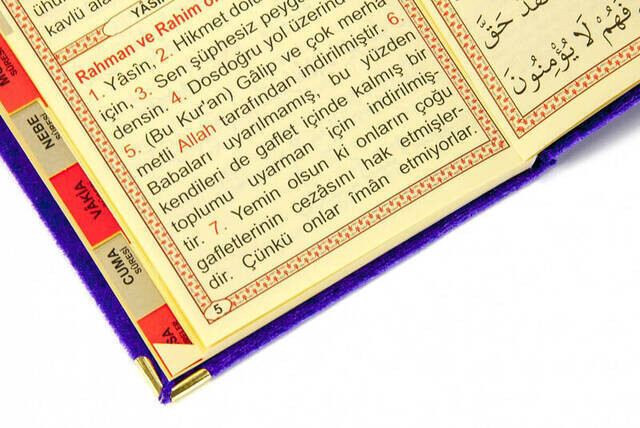 kavlü
YÂSÎN
Rahman ve Rahim
1. Yâsîn, 2. Hikmet
için, 3. Sen şüphesiz
densin. 4. Dosdoğru yol üzerinde
5. (Bu Kur'an) Gâlip ve çok merha
metli Allah tarafından indirilmiştir. 6.
Babaları uyarılmamış, bu yüzden
kendileri de gaflet içinde kalmış bir
toplumu uyarman için indirilmiş-
tir. 7. Yemin olsun ki onların çoğu
gafletlerinin cezâsını hak etmişler-
dir. Çünkü onlar îmân etmiyorlar.
5
NEBE
SÛRESİ
VÂKIA
CUMA
SÛRESİ
حَقَّ
فَهُمْ لَا يُؤْمِنُونَ